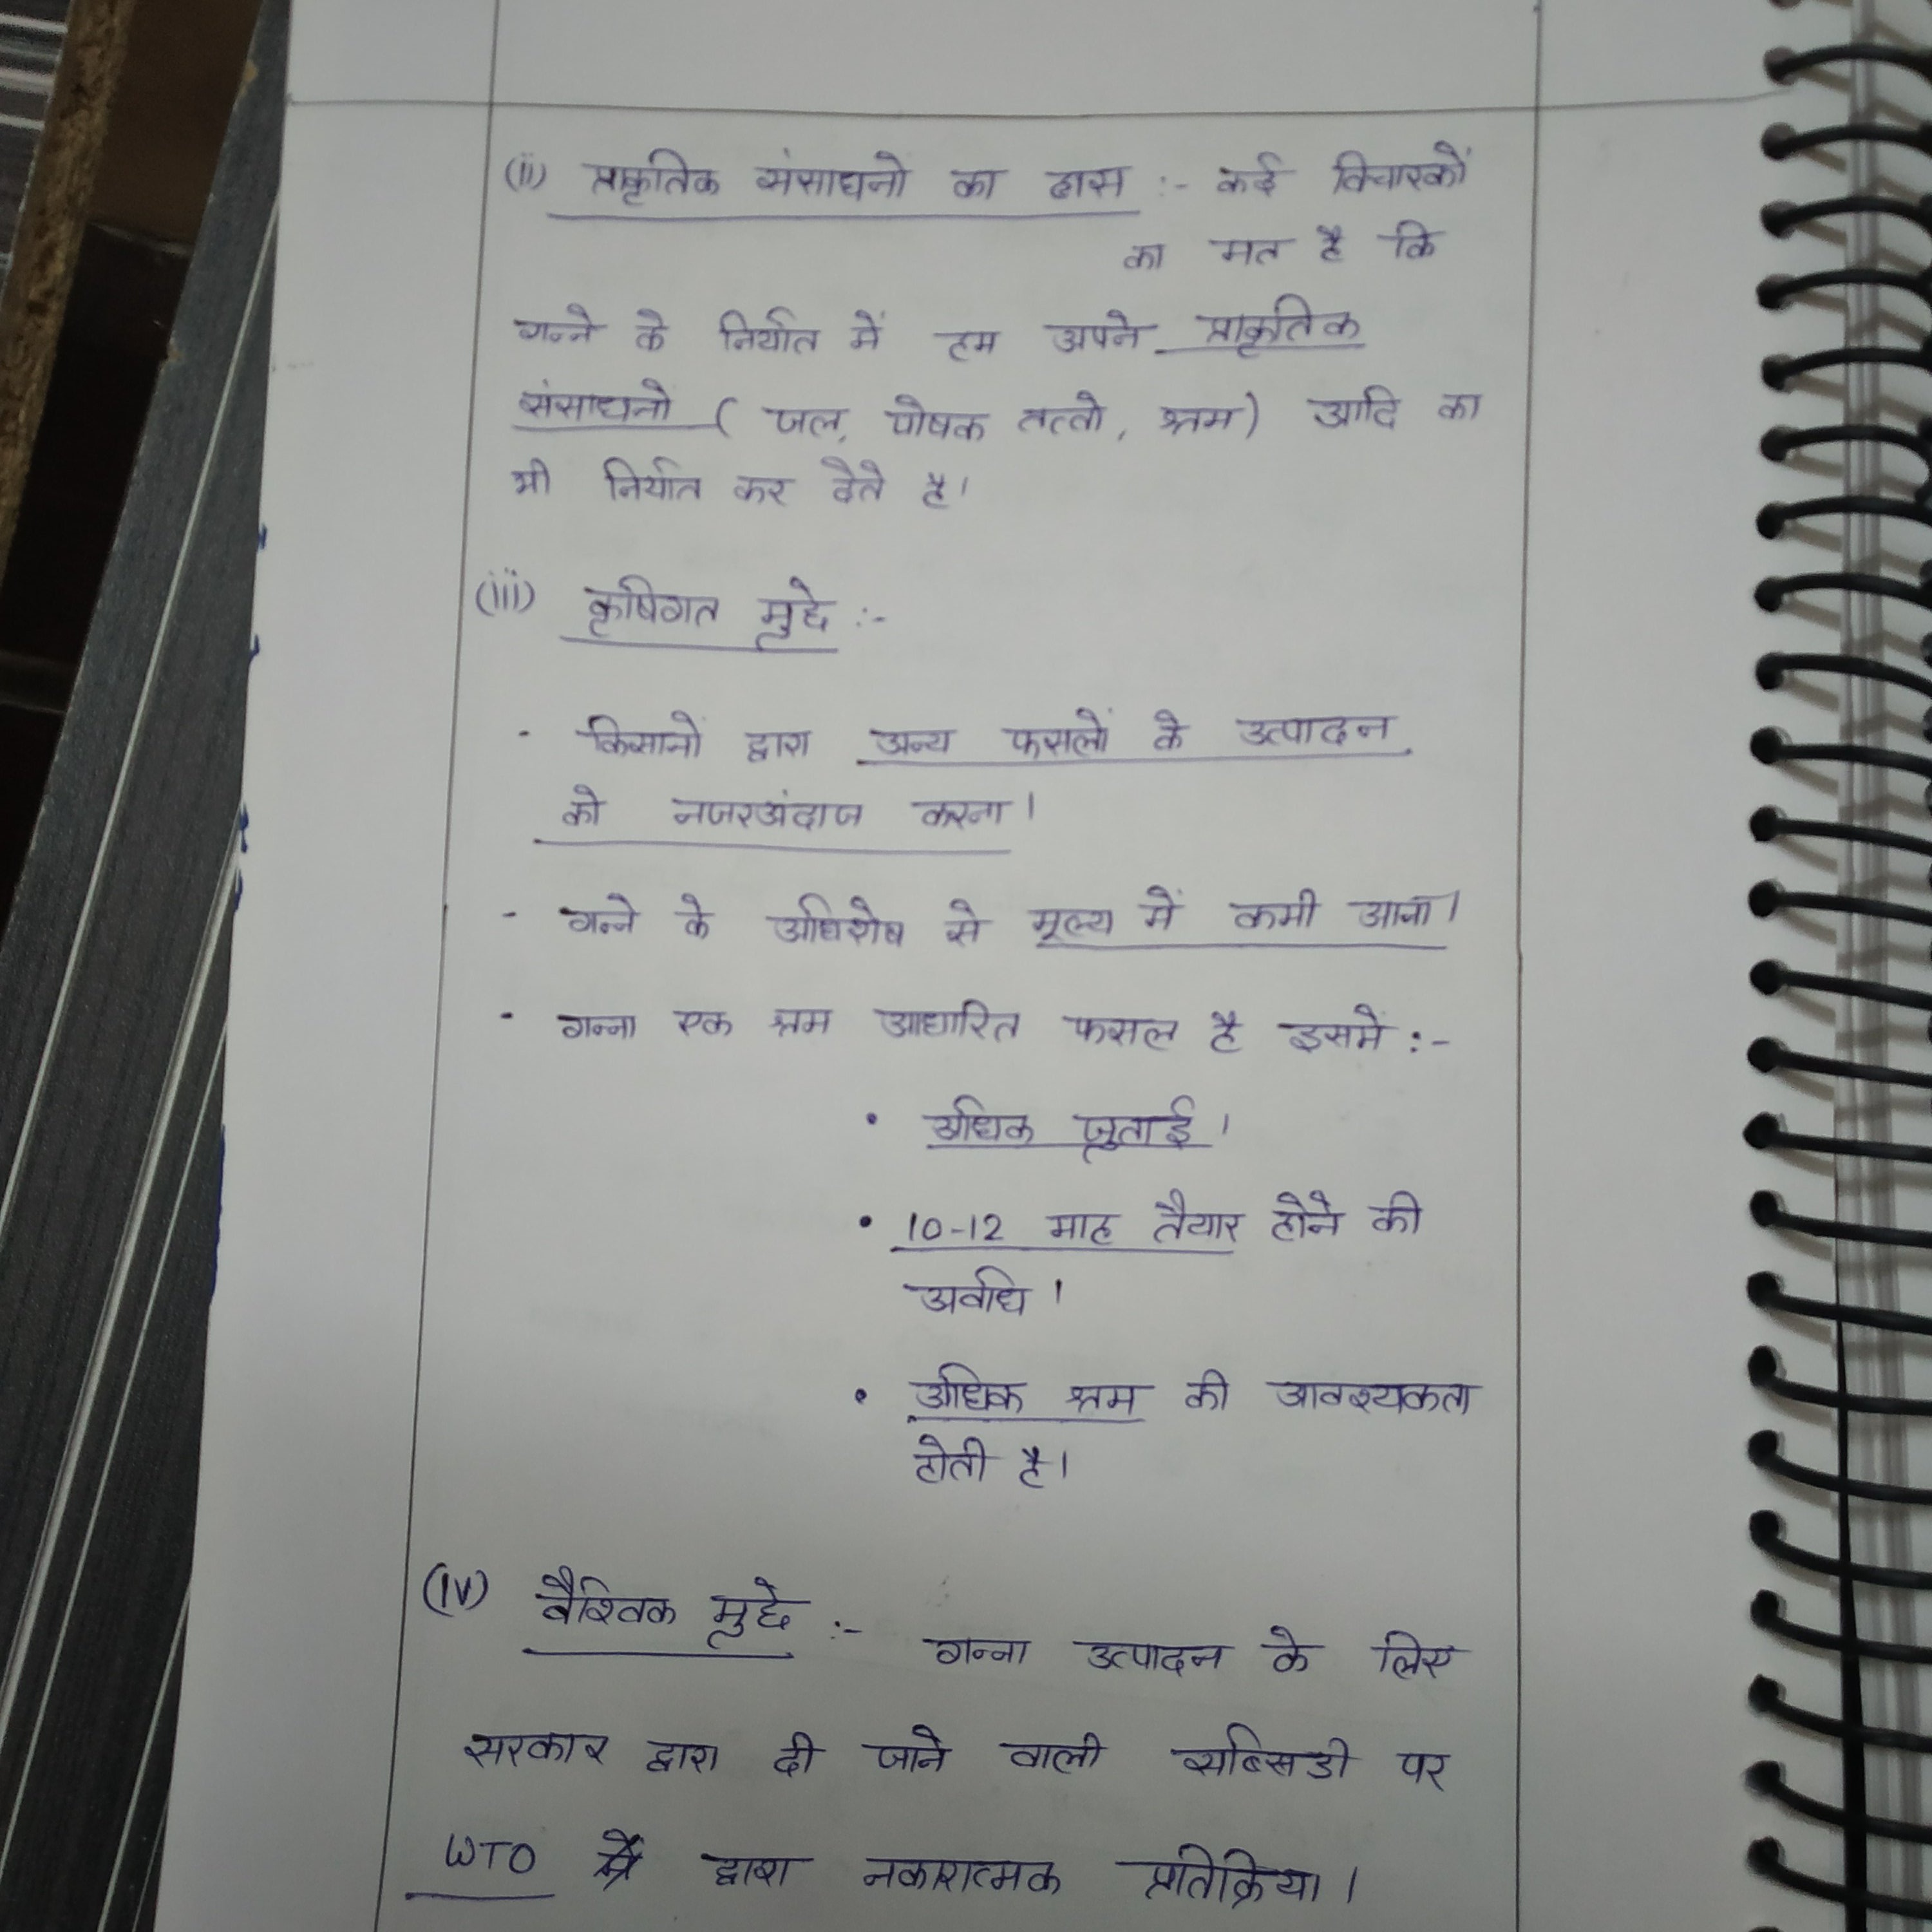 (ii) प्राकृतिक संसाधनो का ह्रास :- कई विचारकों
का मत है कि
गन्ने के निर्यात में हम अपने प्राकृतिक
संसाधनो ( जल, पोषक तत्तो, श्रम) आदि का
भी निर्यात कर देते है।
(iii) कृषिगत मुद्दे :-
- किसानों द्वारा अन्य फसलों के उत्पादन
को नजरअंदाज करना।
- गन्ने के अधिशेष से मूल्य में कमी आना।
- गन्ना एक श्रम आधारित फसल है इसमें :-
• अधिक जुताई।
• 10-12 माह तैयार होने की
अवधि।
• अधिक श्रम की आवश्यकता
होती है।
(iv) वैश्विक मुद्दे :- गन्ना उत्पादन के लिए
सरकार द्वारा दी जाने वाली सब्सिडी पर
WTO द्वारा नकारात्मक प्रतिक्रिया।